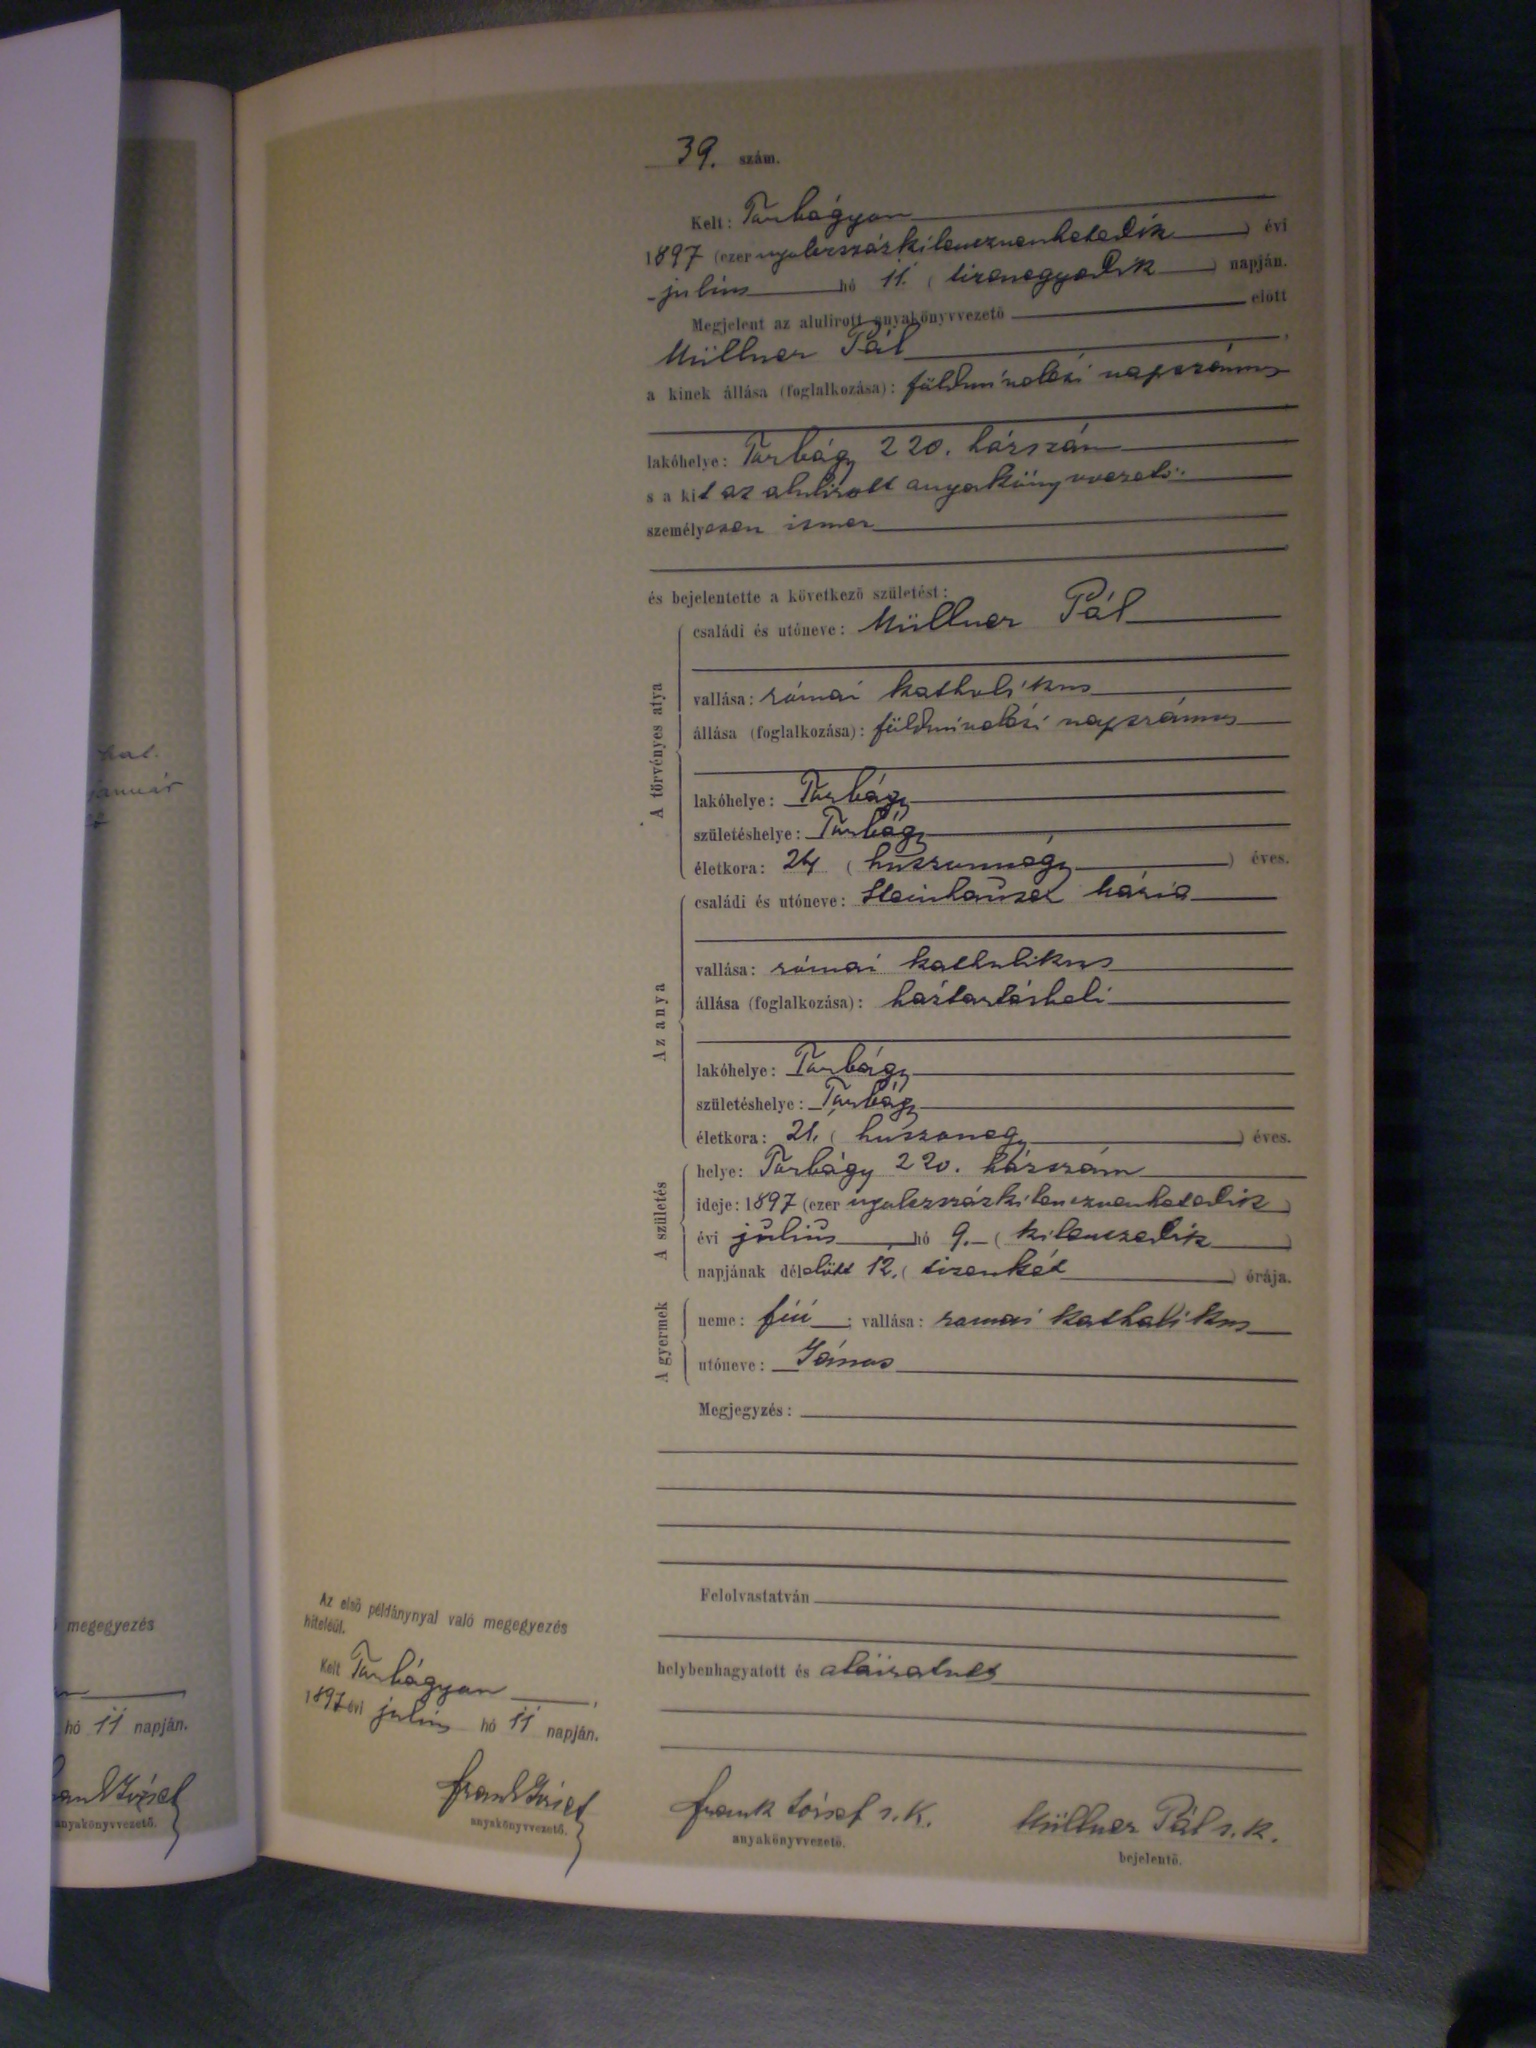 39. szám.
Kelt: Torbágyon
1897 (ezer nyolczszázkilenczvenhetedik) évi
július hó 11. (tizenegyedik) napján.
Megjelent az alulirott anyakönyvvezető előtt
Müllner Pál
a kinek állása (foglalkozása): földmívelési napszámos
lakóhelye: Torbágy 220. házszám
s a kit az alulirott anyakönyvvezető
személyesen ismer
és bejelentette a következő születést:
A törvényes atya
családi és utóneve: Müllner Pál
vallása: római katholikus
állása (foglalkozása): földmívelési napszámos
lakóhelye: Torbágy
születéshelye: Torbágy
életkora: 24 (huszonnégy) éves.
Az anya
családi és utóneve: Steinhauser Mária
vallása: római katholikus
állása (foglalkozása): háztartásbeli
lakóhelye: Torbágy
születéshelye: Torbágy
életkora: 21. (huszonegy) éves.
A születés
helye: Torbágy 220. házszám
ideje: 1897 (ezer nyolczszázkilenczvenhetedik)
évi július hó 9. (kilenczedik)
napjának délelőtt 12. (tizenkét) órája.
A gyermek
neme: fiú; vallása: romai katholikus
utóneve: János
Megjegyzés:
Felolvastatván
helybenhagyatott és aláiratott
Frank József s. k.
anyakönyvvezető.
Müllner Pál s. k.
bejelentő.
Az első példánynyal való megegyezés
hiteléül.
Kelt Torbágyon,
1897 évi július hó 11 napján.
Frank József
anyakönyvvezető.
január
megegyezés
hó 11 napján.
József
anyakönyvvezető.